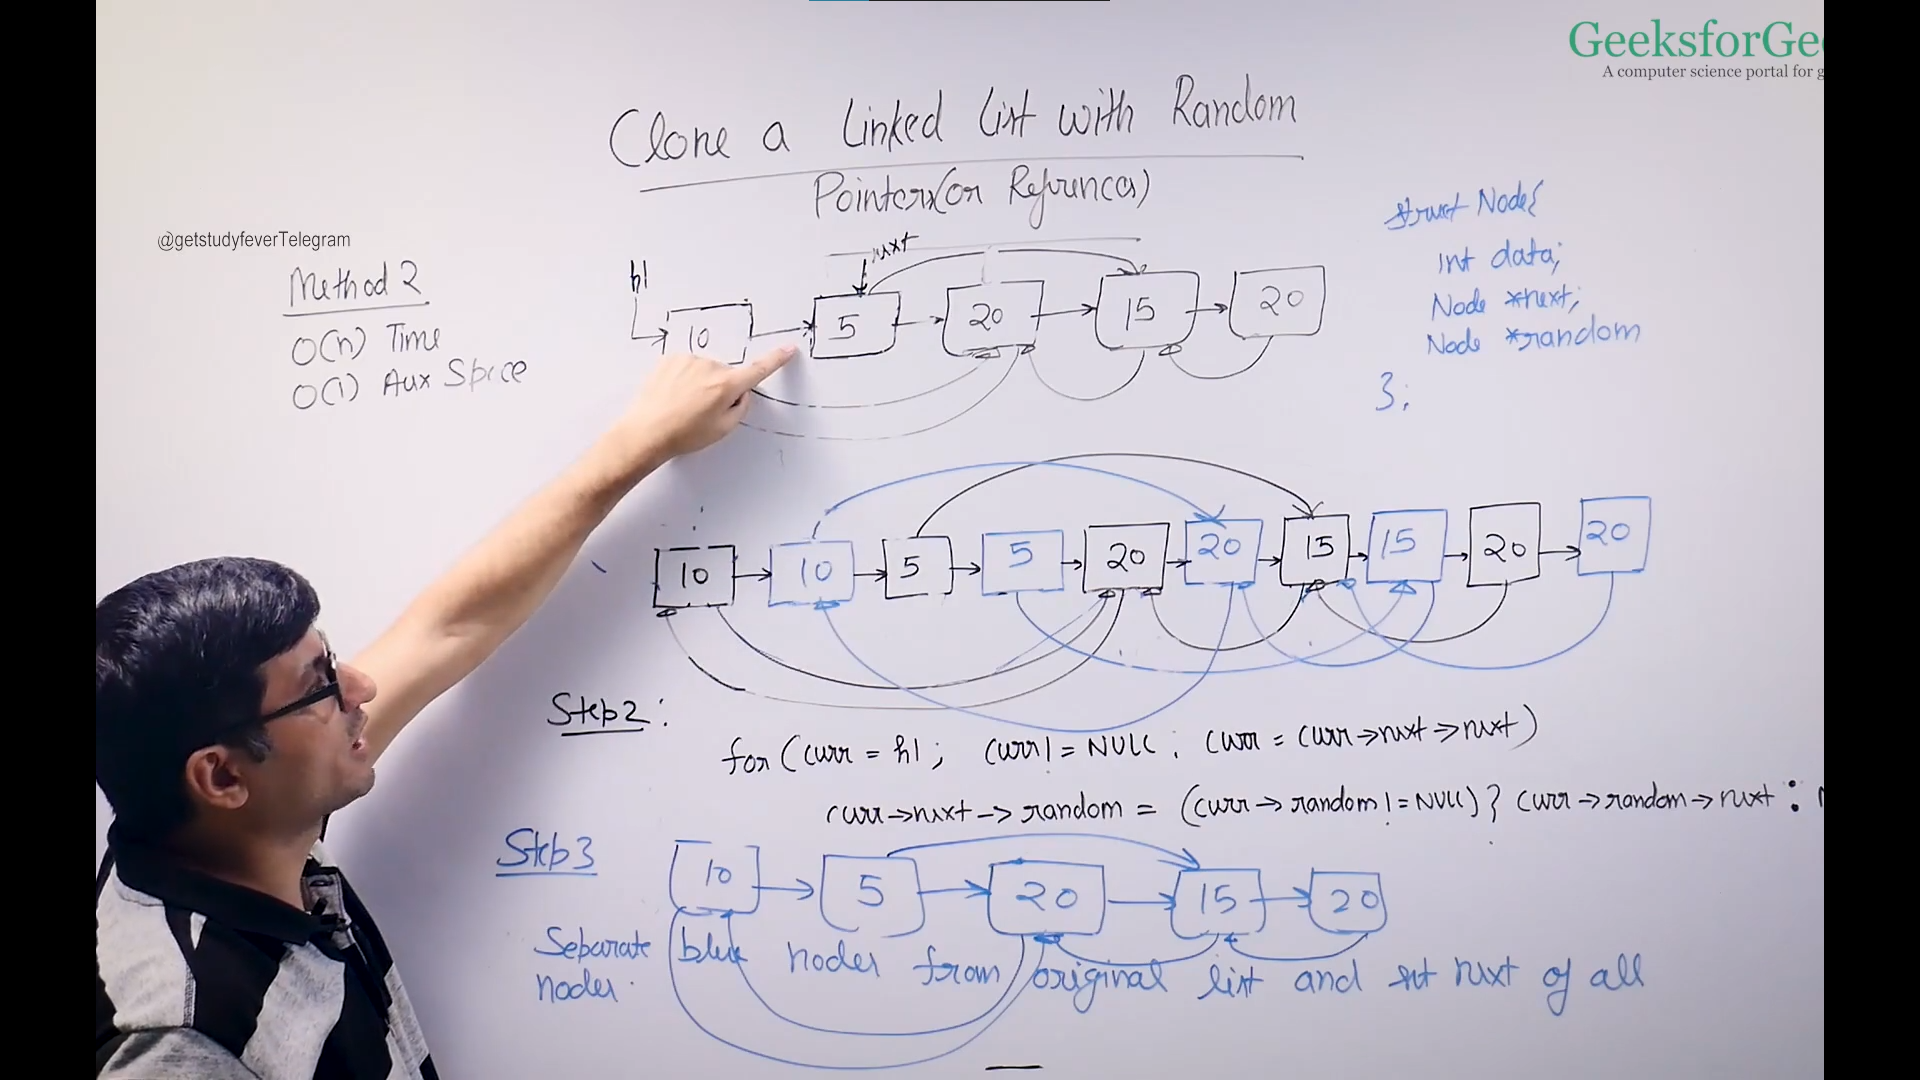 GeeksforGe
A computer science portal for g
Clone a Linked List with Random
Pointers(or References)
@getstudyfeverTelegram
Method 2
O(n) Time
O(1) Aux Space
struct Node{
int data;
Node *next;
Node *random
};
h1
next
10 5 20 15 20
10 10 5 5 20 20 15 15 20 20
Step2:
for (curr = h1; curr != NULL; curr = curr->next->next)
curr->next->random = (curr->random != NULL)? curr->random->next :
Step3
10 5 20 15 20
Separate blue nodes from original list and set next of all
nodes.